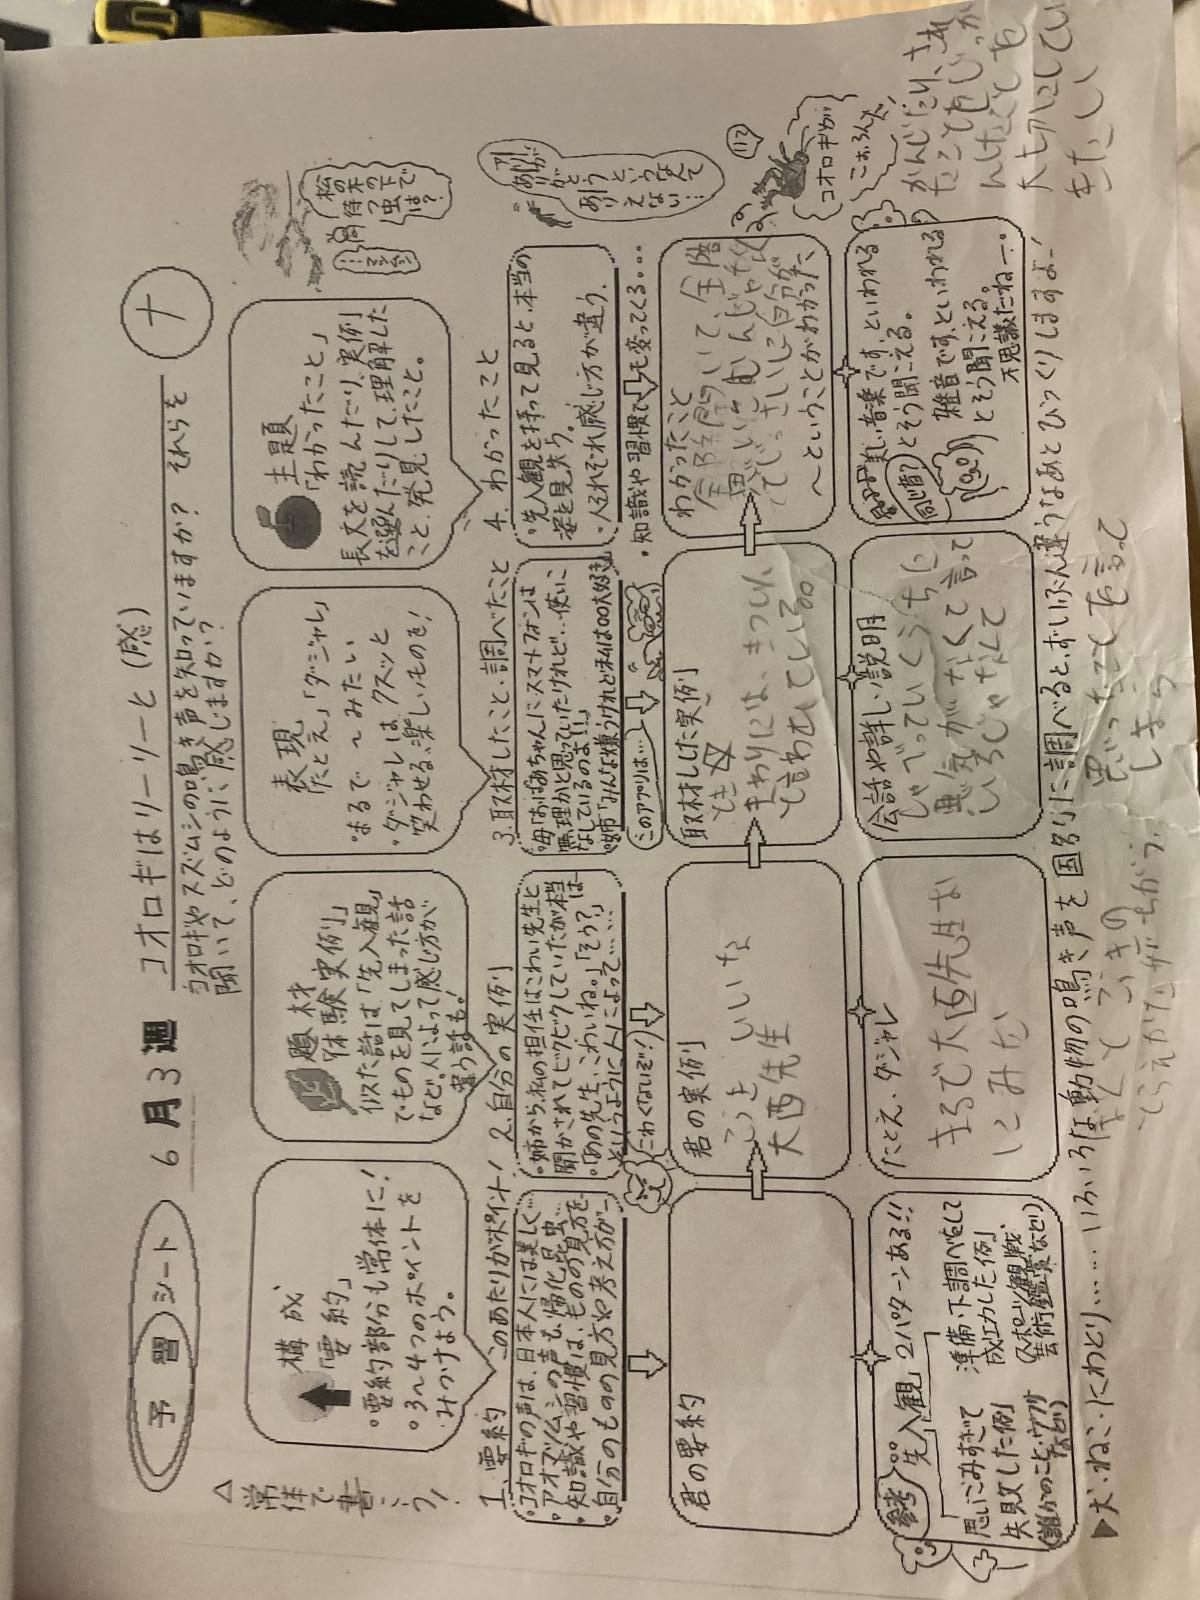 予習シート 6月3週 コオロギはリーリーと(感) ナ
コオロギやスズムシの鳴き声を知っていますか? それらを
聞いて、どのように感じますか?
△常体で書こう!
構成
「要約」
・要約部分も常体に!
・3〜4つのポイントを
みつけよう。
題材
「体験実例」
似た話は、「先入観」
でものを見てしまった話
など。人によって感じ方が
違う話も!
表現
「たとえ」「ダジャレ」
・まるで〜みたい
・ダジャレは、クスッと
笑わせる楽しいものを!
主題
「わかったこと」
長文を読んだり、実例
を選んだりして、理解した
こと、発見したこと。
松の木の下で
待つ虫
は?
1.要約 このあたりがポイント!
・コオロギの声は、日本人には美しく…
・アオマツムシの声も、帰化昆虫…
・知識や習慣は、ものの見方を…
・自分のものの見方や考え方が…
2.自分の実例
・姉から、私の担任はこわい先生と
聞かされてビクビクしていたが本当は
・「あの先生、こわいね。」「そう?」
というように人によって……
こわくないぞ!
3.取材したこと・調べたこと
・母「おばあちゃんにスマートフォンは
無理かと思っていたけれど…使いこ
なしているのよ!!」
・姉「みんな嫌うけれど私は〇〇大好き」
このアプリは…
4.わかったこと
・先入観を持って見ると、本当の
姿を見失う。
・人それぞれ感じ方が違う。
・知識や習慣でも変ってくる…
アリが
ありがとう
というなんて
ありえない…
君の要約
君の実例
こう上 しいな
大西先生
取材した実例
まわりには、きつい
て言われてしてる
わかったこと
〜ということがわかった、
コオロギが…
こおろんだ
参考 「先入観」2パターンある!!
思いこみすぎて
失敗した例
(誰かのこと・ウワサ
など)
準備・下調べをして
成功した例
(スポーツ観戦、
芸術鑑賞など)
たとえ・ダジャレ
まるで大西先生な
にみた
会話や詳しい説明
しゃべっていくうちに
悪気がなくて言って
いるじゃなんて
美しい音楽です、といわれる
とそう聞こえる。
同じ音?
雑音です、といわれる
とそう聞こえる。
不思議だねー。
▶犬・ねこ・にわとり……いろいろな動物の鳴き声を国別に調べると、ずいぶん違うなあとびっくりしますよ!
かんじたり、され
たことも
大切にしてい
きたし
思ったことでも言って
しまう